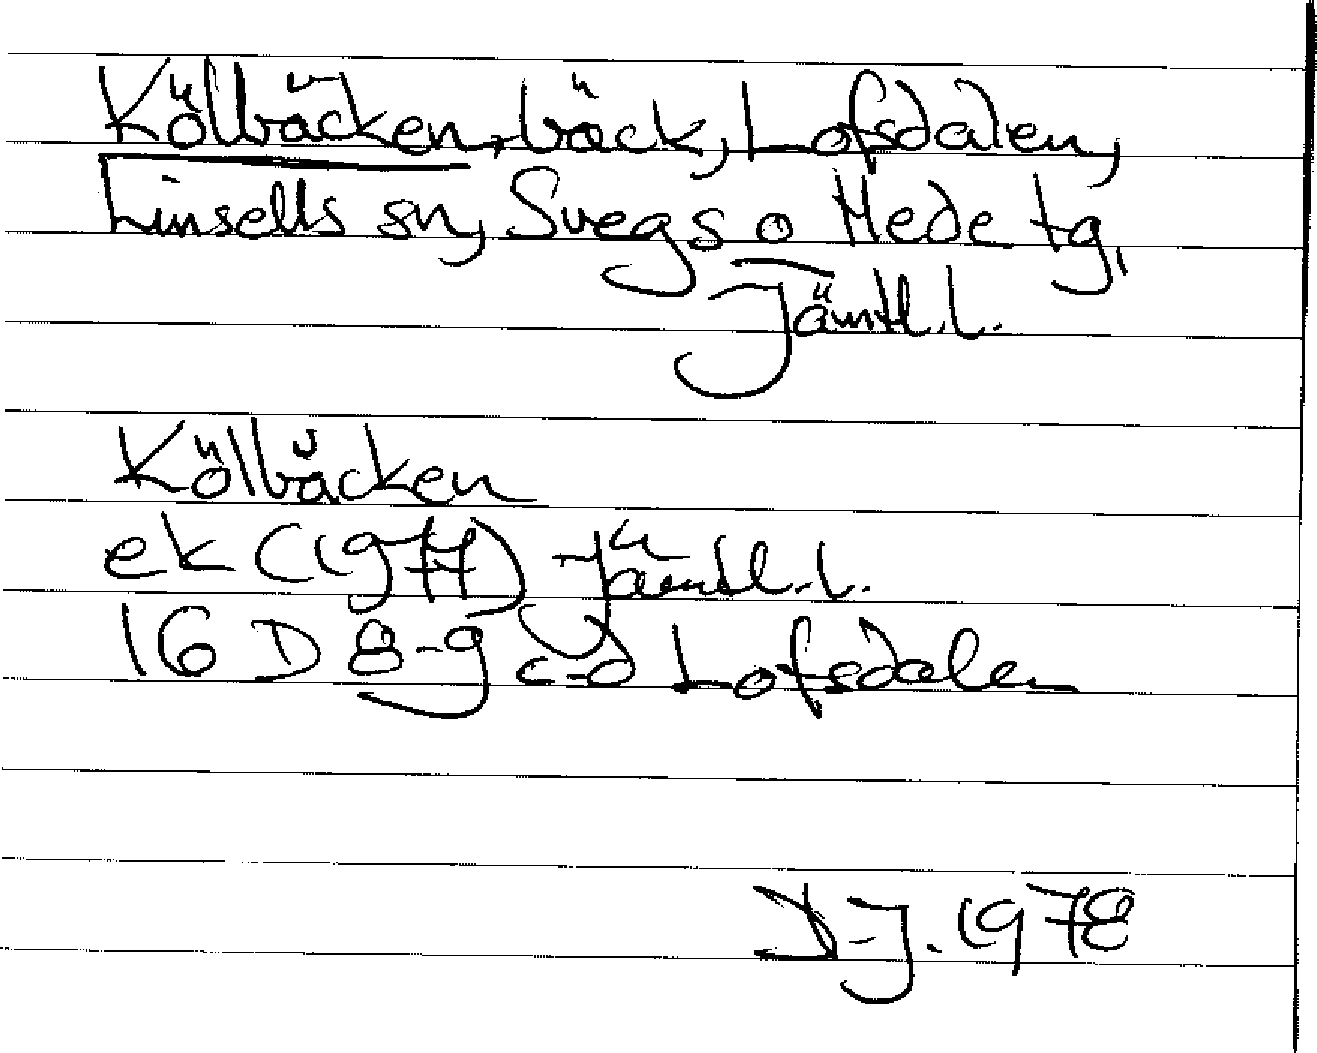 Kölbäcken, bäck, Lofsdalen,
Linsells sn, Svegs o Hede tg,
Jämtl. l.
Kölbäcken
ek (1977) Jämtl. l.
16 D 8-9 c-d Lofsdalen
J. 1978